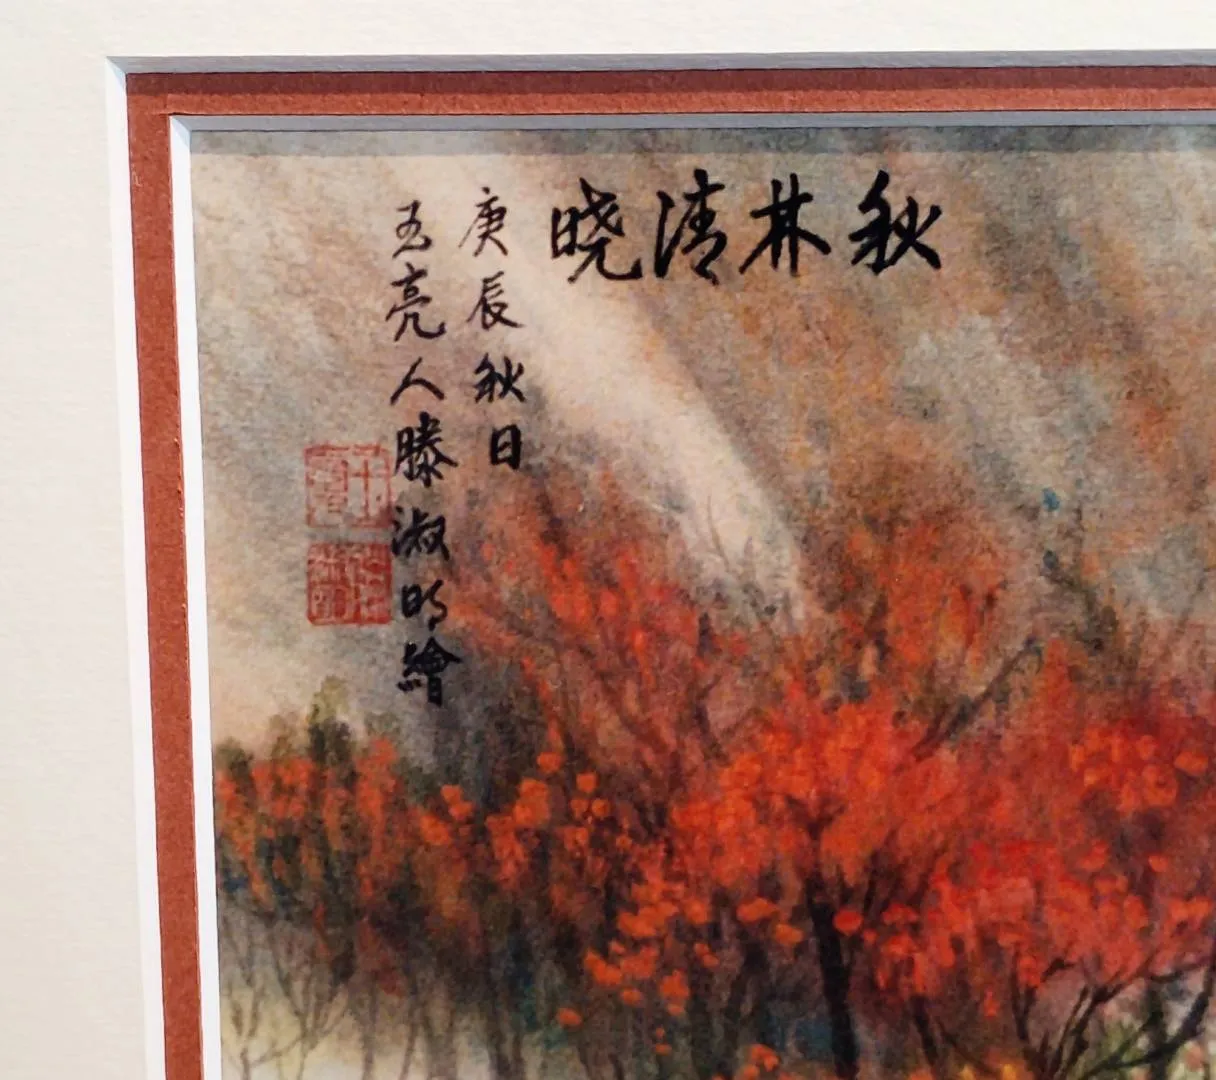 秋林清晓
庚辰秋日
玉亮人滕淑明繪